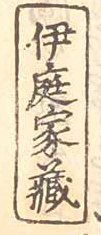 伊庭家藏